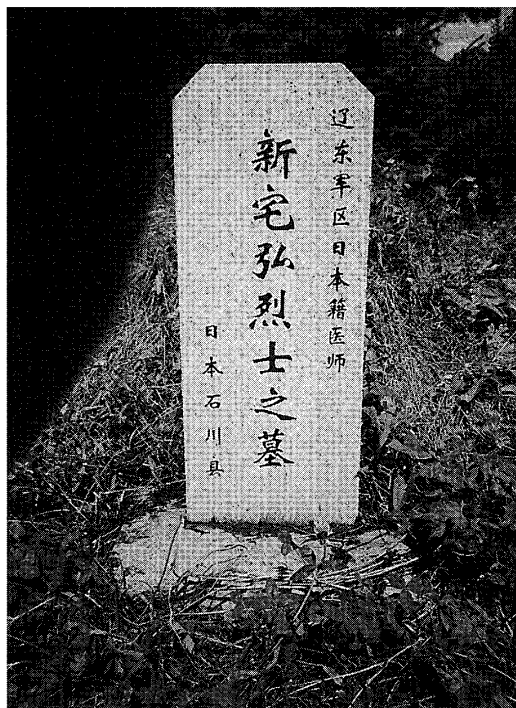 辽东军区日本籍医师
新宅弘烈士之墓
日本石川县